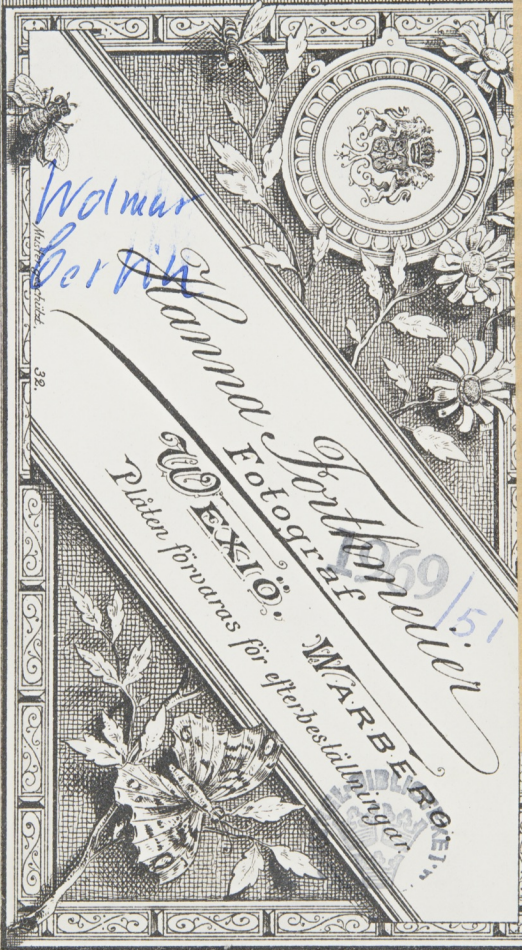 Wolmar
Cervin
Hanna Forthmeiier
Fotograf
WEXIÖ. WARBERG
Plåten förvaras för efterbeställningar.
32.
1969/51